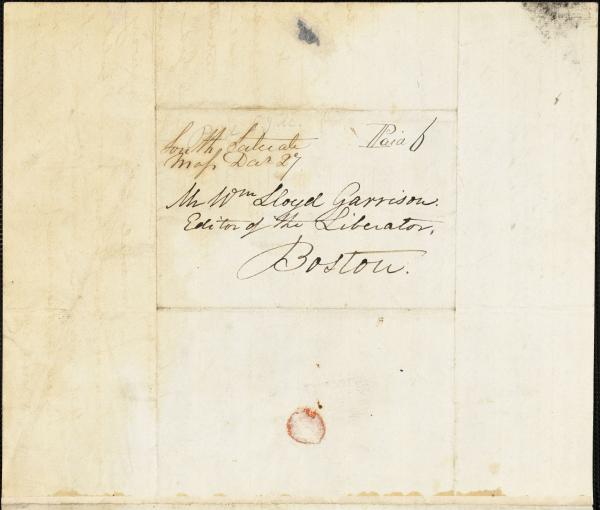 South Scituate
Mass Dec 27
Paid 6
Mr Wm Lloyd Garrison.
Editor of the Liberator,
Boston.